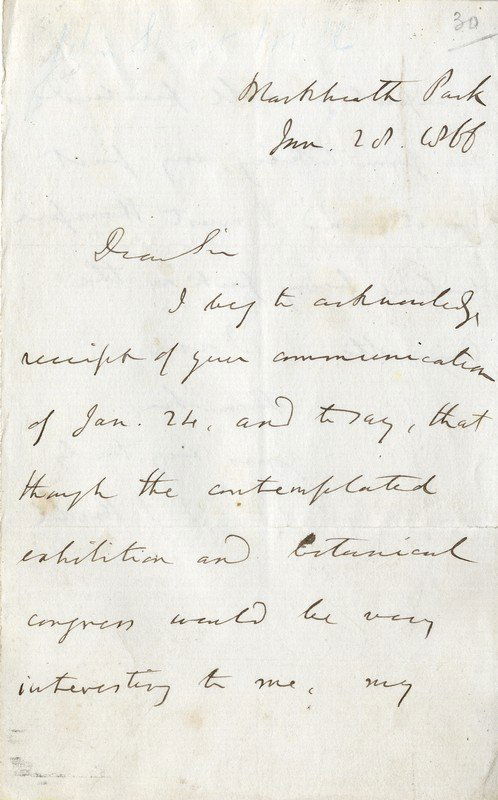 30
Markheath Park
Jan. 28. 1866
Dear Sir
I beg to acknowledge
receipt of your communication
of Jan. 24, and to say, that
though the contemplated
exhibition and botanical
congress would be very
interesting to me, my